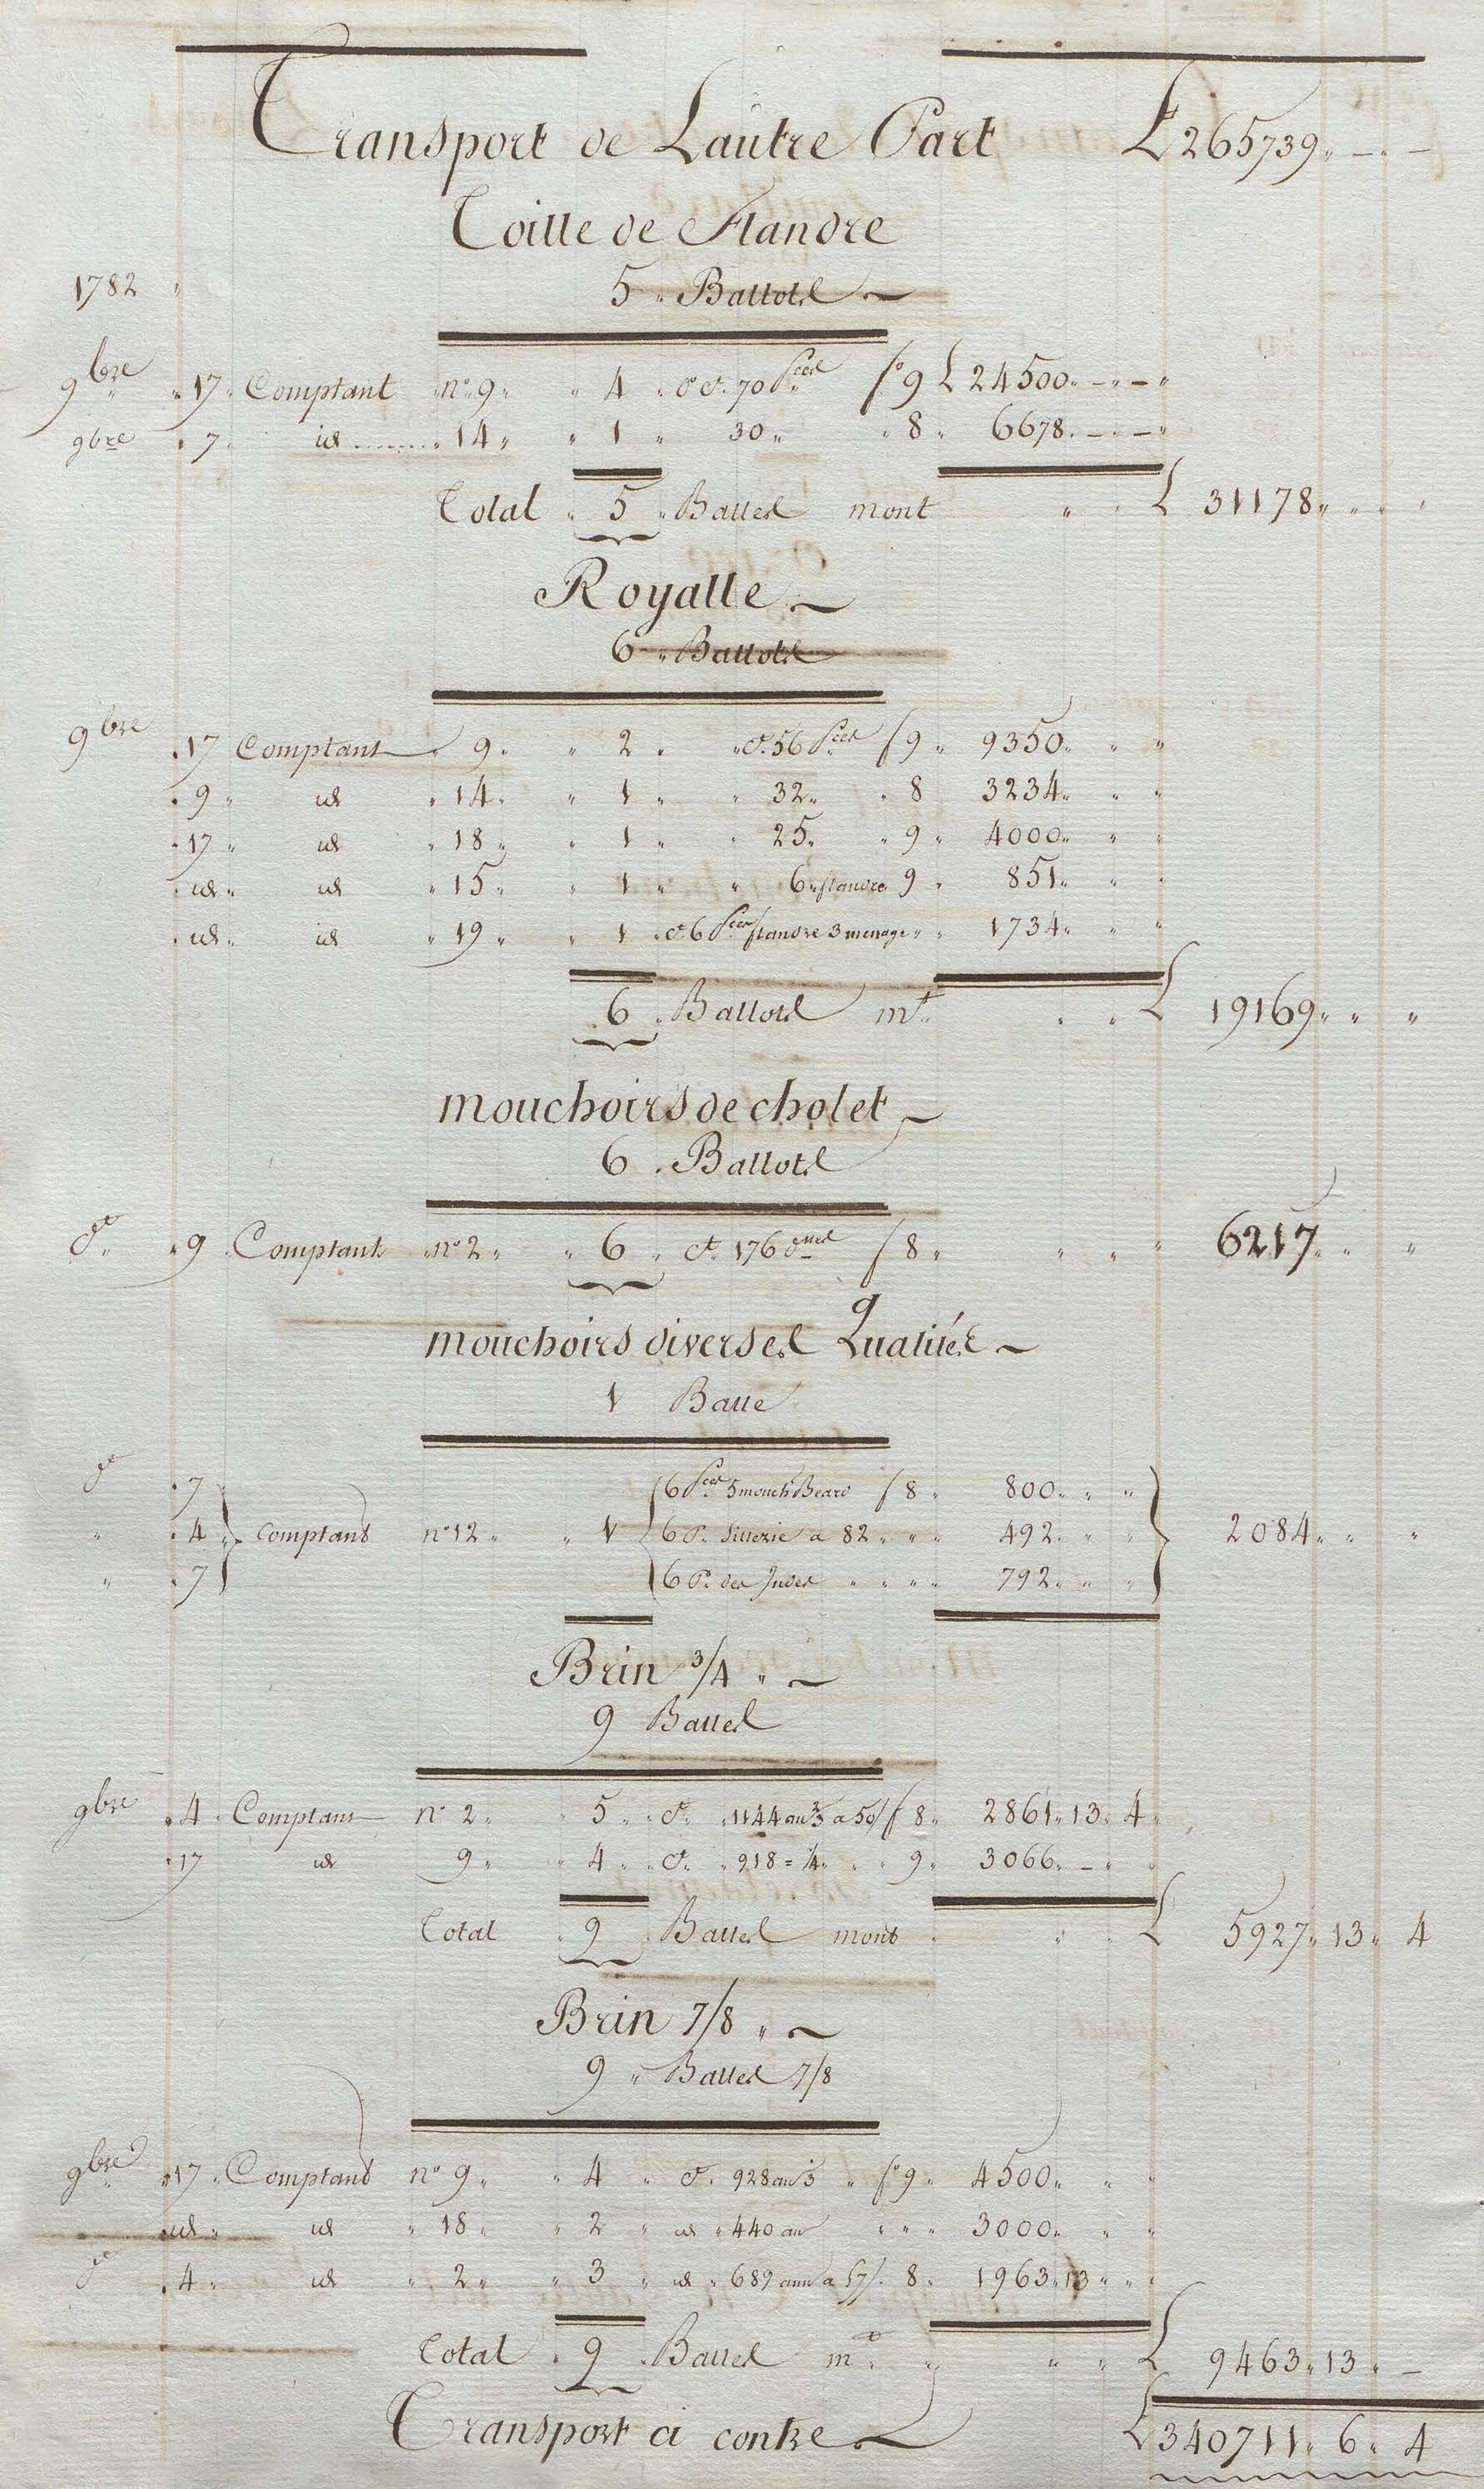 Transport de Lautre Part £ 265739 " — " —
Toille de Flandre
1782 "
5 " Ballots
9bre " 17 " Comptant n° 9 " " 4 " d° ct. 70 Pces f° 9 £ 24500 " — " — "
9bre " 7 " id " 14 " " 1 " 30 " " 8 " 6678 " — " — "
Total " 5 " Balles mont " " £ 31178 " " "
Royalle
6 " Ballots
9bre " 17 Comptant " 9 " " 2 " " ct. 56 Pces f 9 " 9350 " " "
" 9 " id " 14 " " 1 " " 32 " " 8 3234 " " "
" 17 " id " 18 " " 1 " " 25 " " 9 " 4000 " " "
" id " id " 15 " " 1 " " 6 " flandre 9 " 851 " " "
" id " id " 19 " " 1 " ct. 6 Pces flandre 3 menage " " 1734 " " "
6 " Ballots mt " " £ 19169 " " "
mouchoirs de cholet
6 " Ballots
do " 9 Comptant " n° 2 " " 6 " ct. 176 dnes f 8 " " " " 6217 " " "
mouchoirs diverses Qualités
1 Balle
do " 7 6 Pces 5 mouch Beard f 8 " 800 " " "
" " 4 " Comptant n° 12 " " 1 6 P. Sillezie a 82 " " " 492 " " " 2084 " " "
" " 7 6 P. des Indes " " " " 792 " " "
Brin 3/4 "
9 Balles
9bre " 4 " Comptant n° 2 " " 5 " " ct. " 1144 au 3/3 a 50/ f 8 " 2861 " 13 " 4 "
" 17 id 9 " " 4 " " ct. " 918 = 1/4 " " " 9 " 3066 " — " "
Total " 9 " Balles mont " " " £ 5927 " 13 " 4
Brin 7/8 "
9 " Balles 7/8
9bre " 17 " Comptant n° 9 " " 4 " ct. 928 au 1/3 " f° 9 " 4500 " " "
" id " id " 18 " " 2 " id " 440 au " " " 3000 " " "
do " 4 " id " 2 " " 3 " id " 689 aun a 57/. 8 " 1963 " 13 " " "
Total " 9 " Balles mt " " " " £ 9463 " 13 " —
Transport ci contre £ 340711 " 6 " 4